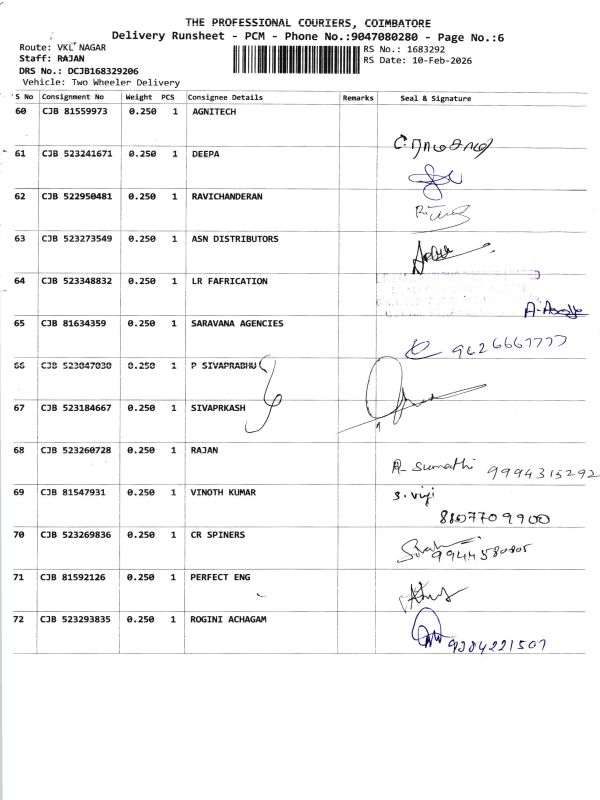 THE PROFESSIONAL COURIERS, COIMBATORE
Delivery Runsheet - PCM - Phone No.:9047080280 - Page No.:6
Route: VKL NAGAR
RS No.: 1683292
Staff: RAJAN
RS Date: 10-Feb-2026
DRS No.: DCJB168329206
Vehicle: Two Wheeler Delivery
S No Consignment No Weight PCS Consignee Details Remarks Seal & Signature
60 CJB 81559973 0.250 1 AGNITECH
61 CJB 523241671 0.250 1 DEEPA
62 CJB 522950481 0.250 1 RAVICHANDERAN
63 CJB 523273549 0.250 1 ASN DISTRIBUTORS
64 CJB 523348832 0.250 1 LR FAFRICATION
65 CJB 81634359 0.250 1 SARAVANA AGENCIES
9626667777
66 CJB 523047030 0.250 1 P SIVAPRABHU
67 CJB 523184667 0.250 1 SIVAPRKASH
68 CJB 523260728 0.250 1 RAJAN
A- Sumathi 9994315292
69 CJB 81547931 0.250 1 VINOTH KUMAR
S. Viji
8807709900
70 CJB 523269836 0.250 1 CR SPINERS
9944580805
71 CJB 81592126 0.250 1 PERFECT ENG
72 CJB 523293835 0.250 1 ROGINI ACHAGAM
9384221507